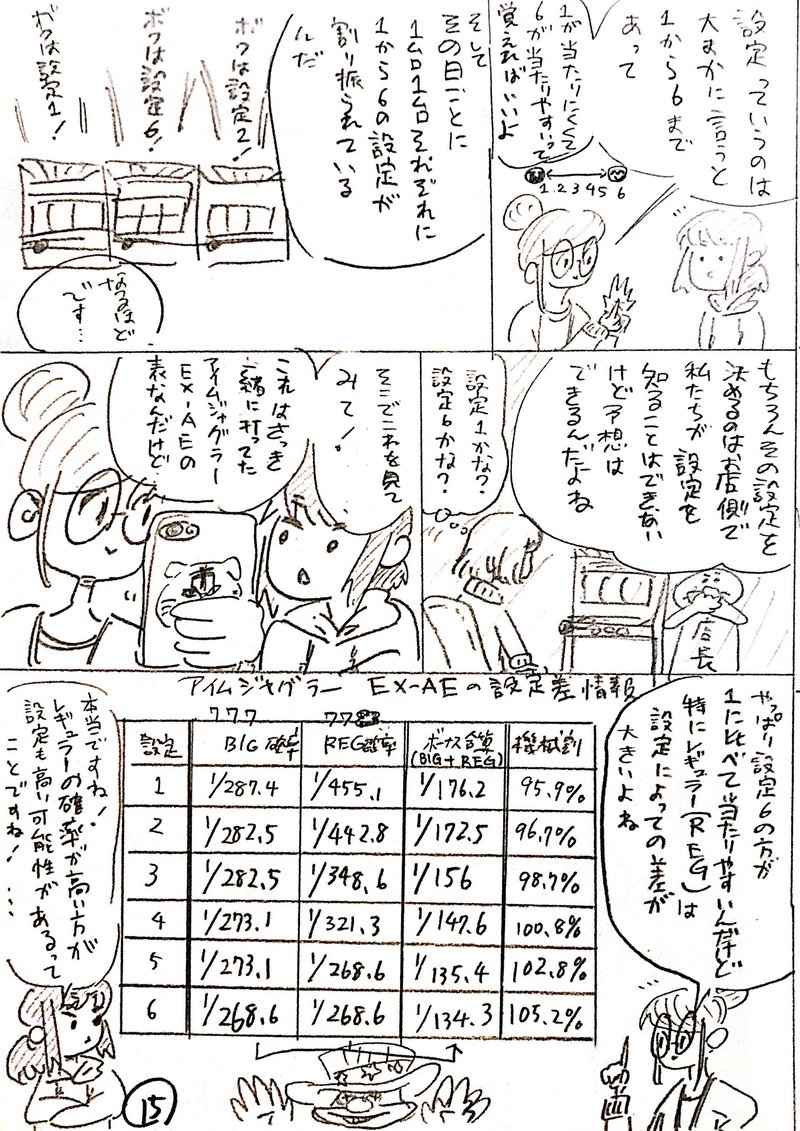 設定っていうのは
大まかに言うと
1から6まで
あって
1が当たりにくくて
6が当たりやすいって
覚えればいいよ
1 2 3 4 5 6
そして
その日ごとに
1台1台それぞれに
1から6の設定が
割り振られている
んだ
ボクは設定2!
ボクは設定6!
ボクは設定1!
なるほど
です…
もちろんその設定を
決めるのはお店側で
私たちが設定を
知ることはできない
けど予想は
できるんだよね
店長
設定1かな?
設定6かな?
そこでこれを見て
みて!
これはさっき
一緒に打ってた
アイムジャグラー
EX-AEの
表なんだけど
アイムジャグラー EX-AEの設定差情報
やっぱり設定6の方が
1に比べて当たりやすいんだけど
特にレギュラー(REG)は
設定によっての差が
大きいよね
777 77
設定 BIG確率 REG確率 ボーナス合算(BIG+REG) 機械割
1 1/287.4 1/455.1 1/176.2 95.9%
2 1/282.5 1/442.8 1/172.5 96.7%
3 1/282.5 1/348.6 1/156 98.7%
4 1/273.1 1/321.3 1/147.6 100.8%
5 1/273.1 1/268.6 1/135.4 102.8%
6 1/268.6 1/268.6 1/134.3 105.2%
本当ですね!
レギュラーの確率が高い方が
設定も高い可能性があるって
ことですね!…
15